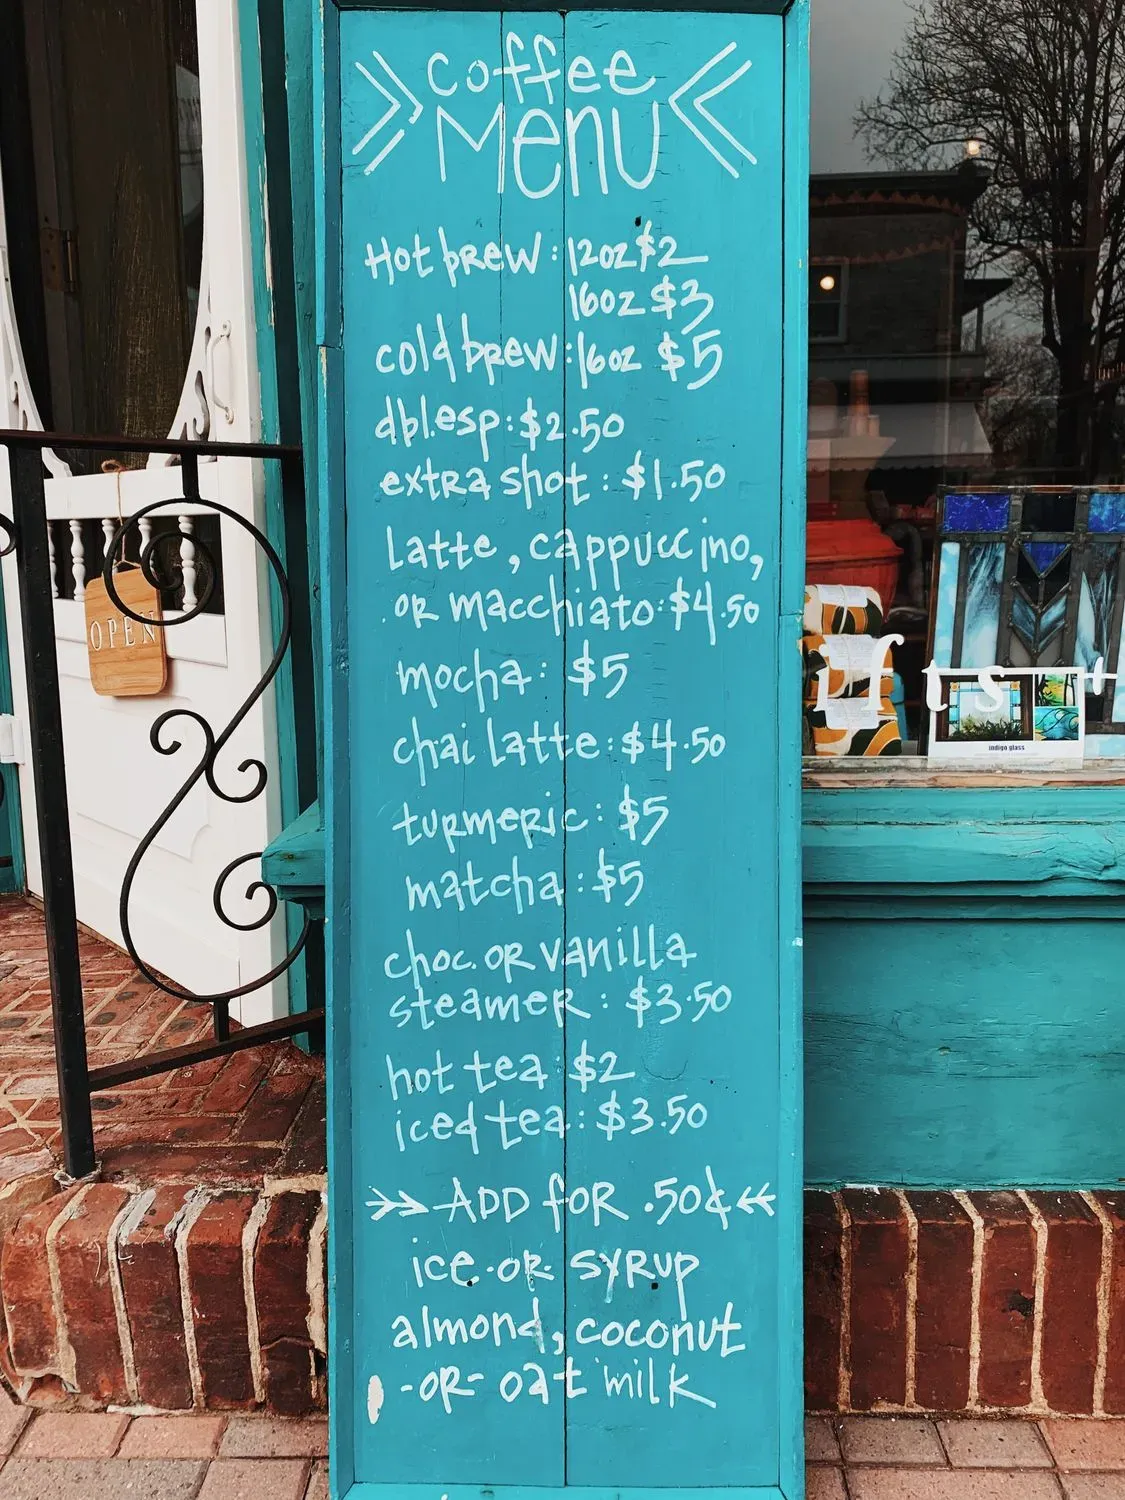 coffee
Menu
Hot brew: 12oz $2
16oz $3
cold brew: 16oz $5
dbl.esp: $2.50
extra shot: $1.50
Latte, cappuccino,
or macchiato: $4.50
mocha: $5
chai latte: $4.50
turmeric: $5
matcha: $5
choc. or vanilla
steamer: $3.50
hot tea: $2
iced tea: $3.50
ADD for .50¢
ice -or- syrup
almond, coconut
-or- oat milk
OPEN
ifts +
indigo glass